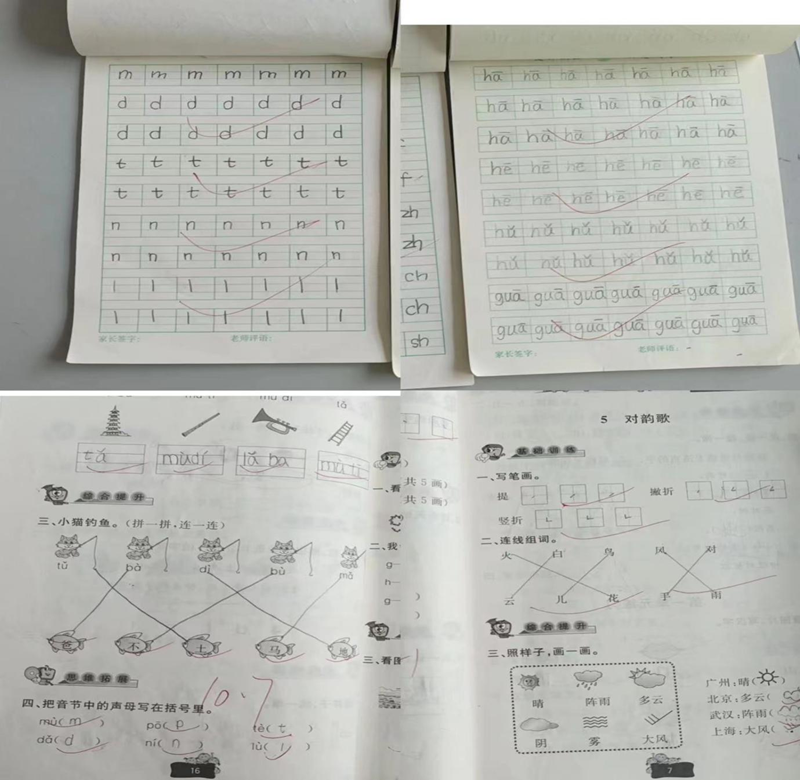 m m m m m m m
d d d d d d d
d d d d d d d
t t t t t t t
t t t t t t t
n n n n n n n
n n n n n n n
l l l l l l l
l l l l l l l
家长签字: 老师评语:
f
zh
zh
ch
ch
sh
hā hā hā hā hā hā hā
hā hā hā hā hā hā hā
hā hā hā hā hā hā hā
hē hē hē hē hē hē hē
hē hē hē hē hē hē hē
hǔ hǔ hǔ hǔ hǔ hǔ hǔ
hǔ hǔ hǔ hǔ hǔ hǔ hǔ
guā guā guā guā guā guā guā
guā guā guā guā guā guā guā
家长签字: 老师评语:
tǎ mùdí lǎ ba mù tī
综合提升
三、小猫钓鱼。(拼一拼,连一连)
tǔ bà dì bù mǎ
爸 不 土 马 地
思维拓展
10.7
四、把音节中的声母写在括号里。
mù(m) pō(p) tè(t)
dǎ(d) ní(n) lù(l)
16
共5画)
共5画)
一、看
二、我
g
h
g
三、看图
5 对韵歌
基础训练
一、写笔画。
提 撇折
竖折
二、连线组词。
火 白 鸟 风 对
云 儿 花 手 雨
综合提升
三、照样子,画一画。
晴 阵雨 多云
阴 雾 大风
广州:晴(
北京:多云(
武汉:阵雨(
上海:大风(
7